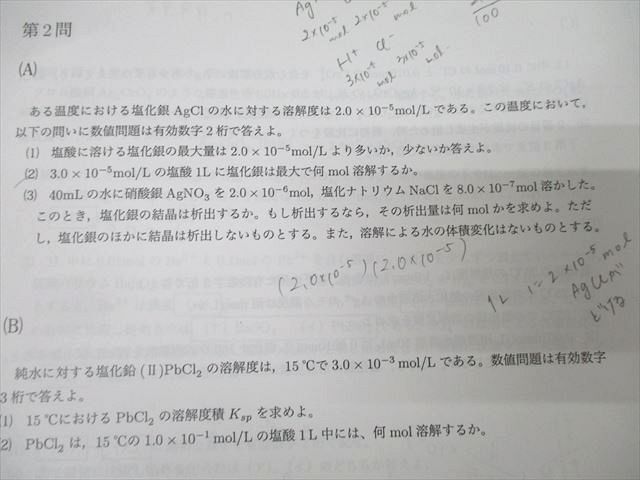 Ag⁺
2×10⁻⁵ mol 2×10⁻⁵ mol
100
H⁺ Cl⁻
3×10⁻⁵ mol 3×10⁻⁵ mol
第2問
(A)
ある温度における塩化銀 AgCl の水に対する溶解度は 2.0 × 10⁻⁵mol/L である。この温度において,
以下の問いに数値問題は有効数字2桁で答えよ。
(1) 塩酸に溶ける塩化銀の最大量は 2.0 × 10⁻⁵mol/L より多いか,少ないか答えよ。
(2) 3.0 × 10⁻⁵mol/L の塩酸 1L に塩化銀は最大で何 mol 溶解するか。
(3) 40mL の水に硝酸銀 AgNO₃ を 2.0 × 10⁻⁶mol,塩化ナトリウム NaCl を 8.0 × 10⁻⁷mol 溶かした。
このとき,塩化銀の結晶は析出するか。もし析出するなら,その析出量は何 mol かを求めよ。ただ
し,塩化銀のほかに結晶は析出しないものとする。また,溶解による水の体積変化はないものとする。
(2.0×10⁻⁵)(2.0×10⁻⁵)
1L に 2×10⁻⁵ mol
AgClが
とける
(B)
純水に対する塩化鉛 (II)PbCl₂ の溶解度は,15 ℃で 3.0 × 10⁻³ mol/L である。数値問題は有効数字
3桁で答えよ。
(1) 15 ℃における PbCl₂ の溶解度積 Ksp を求めよ。
(2) PbCl₂ は,15 ℃の 1.0 × 10⁻¹ mol/L の塩酸 1L 中には、何 mol 溶解するか。